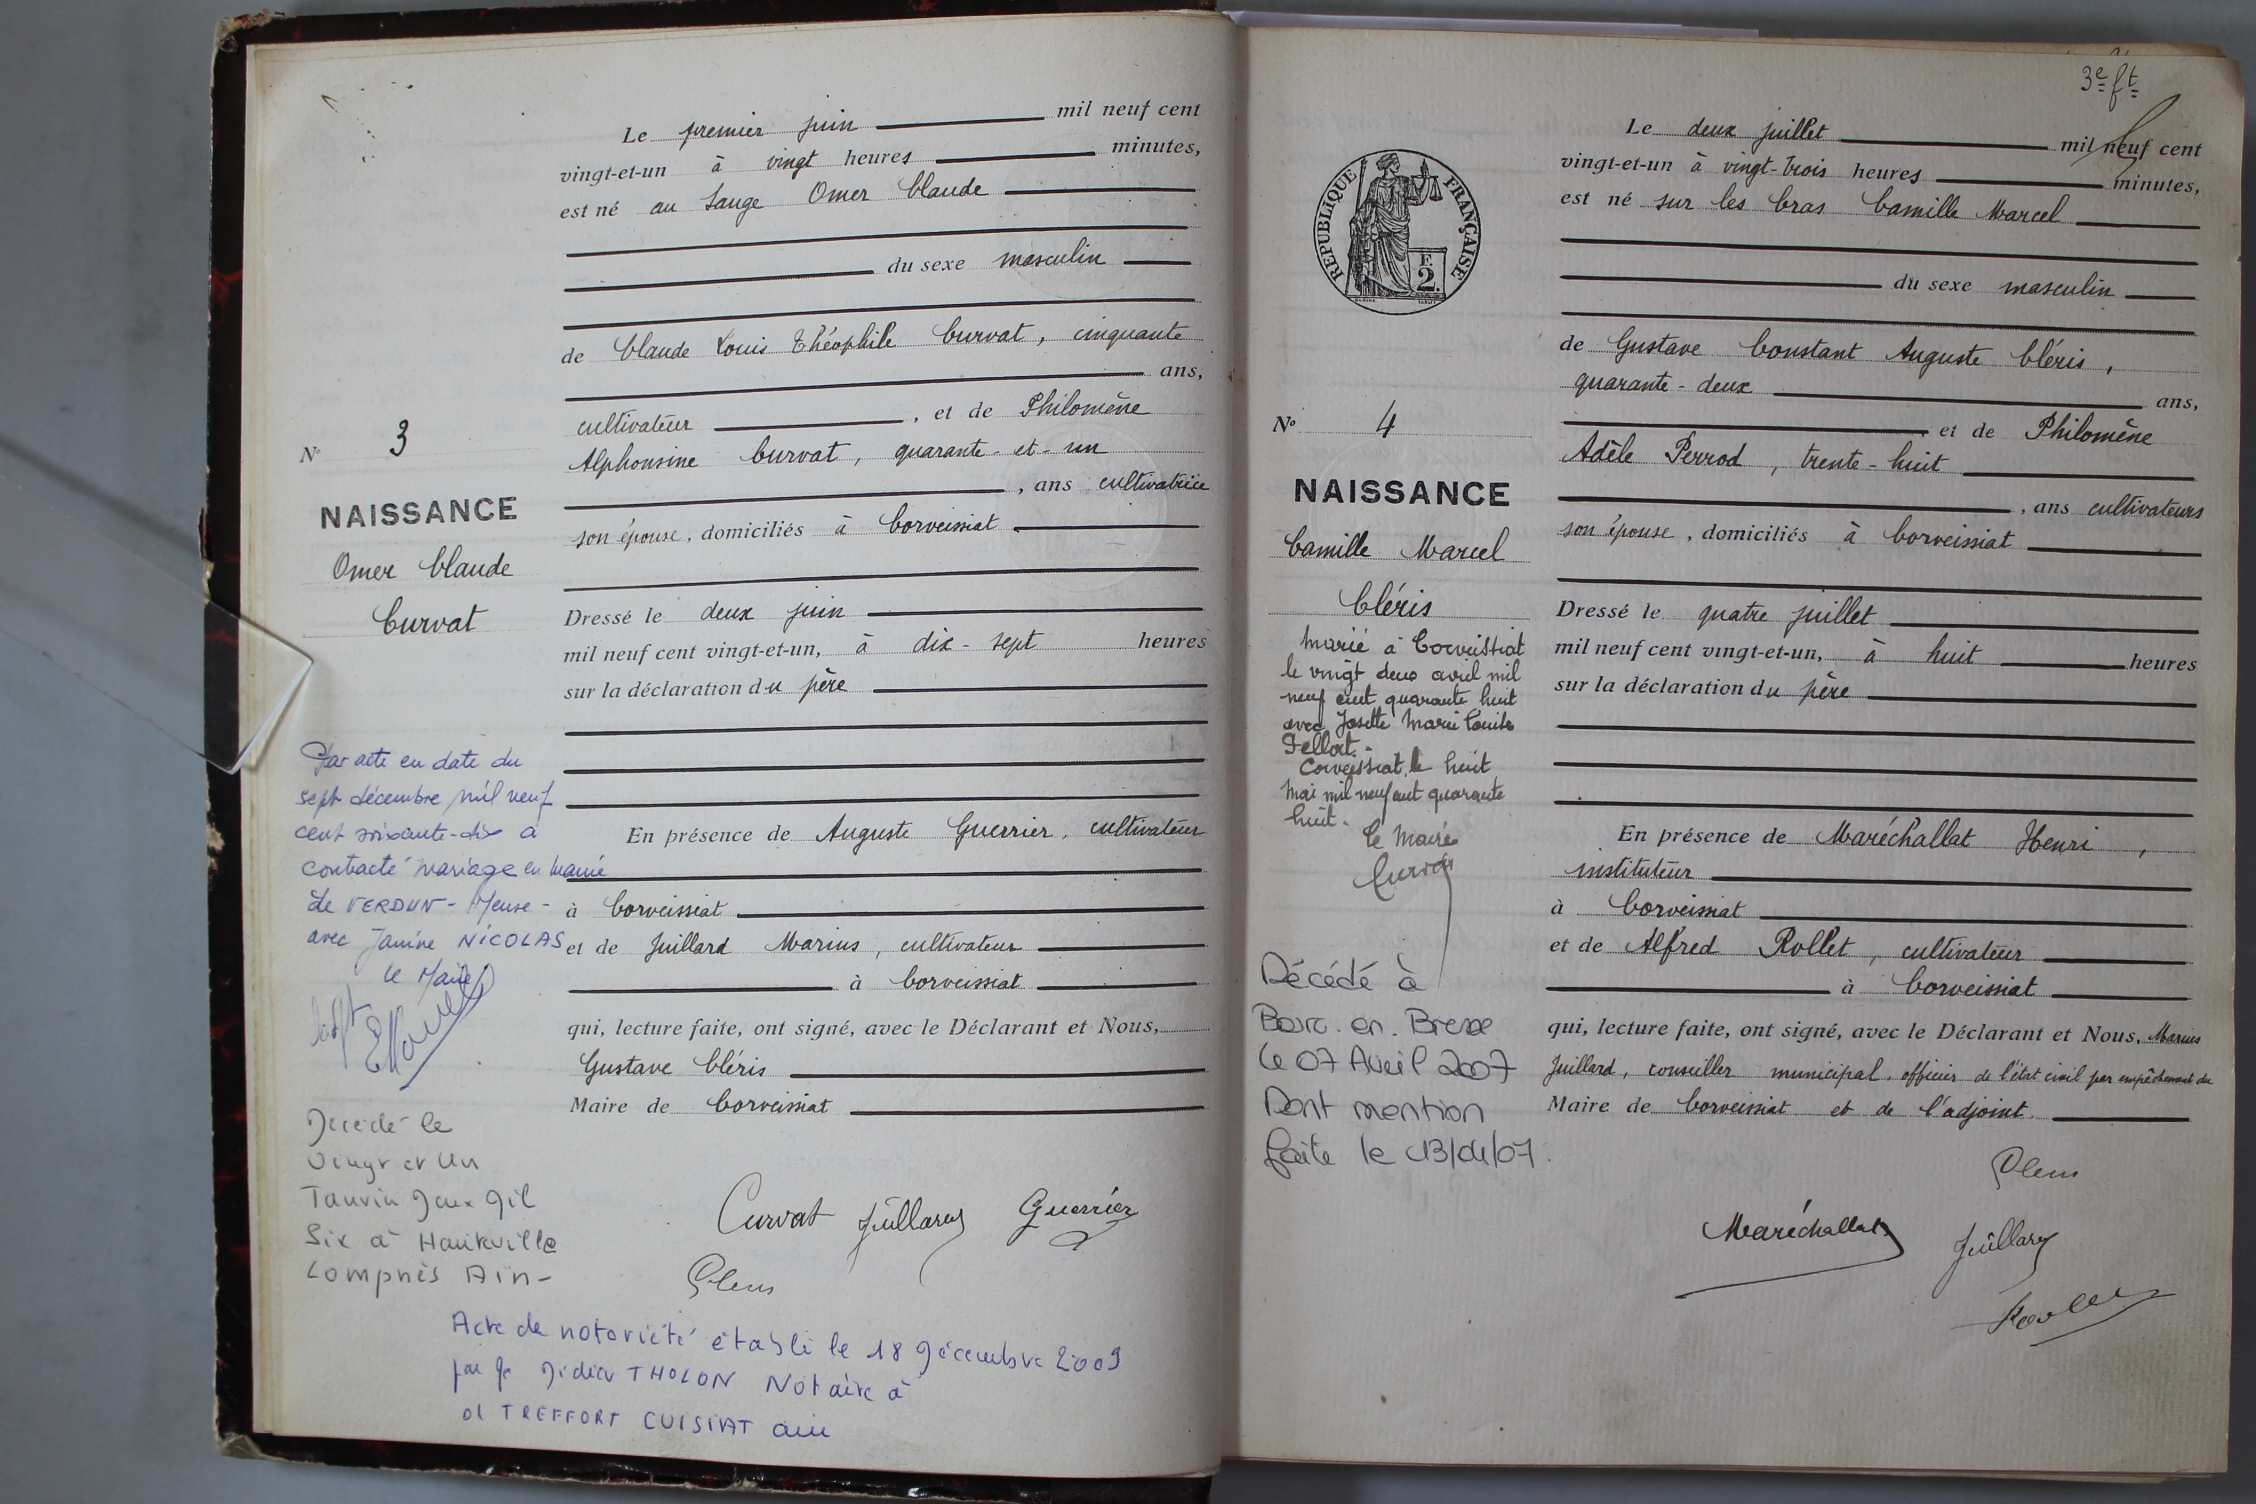 Le premier juin mil neuf cent
vingt-et-un à vingt heures minutes,
est né au Sauge Omer Claude
du sexe masculin
de Claude Louis Théophile Curvat, cinquante
ans,
cultivateur , et de Philomène
Alphonsine Curvat, quarante-et-un
, ans cultivatrice
son épouse, domiciliés à Corveissiat
Dressé le deux juin
mil neuf cent vingt-et-un, à dix-sept heures
sur la déclaration du père
En présence de Auguste Guerrier, cultivateur
à Corveissiat
et de Juillard Marius, cultivateur
à Corveissiat
qui, lecture faite, ont signé, avec le Déclarant et Nous,
Gustave Cléris
Maire de Corveissiat
Curvat Juillard Guerrier
No 3
NAISSANCE
Omer Claude
Curvat
Par acte en date du
sept décembre mil neuf
cent soixante-dix a
contracté mariage en mairie
de VERDUN - Meuse -
avec Janine NICOLAS
le Maire
Décédé le
Vingt et Un
Janvier Deux Mil
Six à Hauteville
Lompnès Ain -
Acte de notoriété établi le 18 Décembre 2009
par Me Didier THOLON Notaire à
01 TREFFORT CUISIAT ain
3e ft
RÉPUBLIQUE FRANÇAISE
F.
2.
Le deux juillet mil neuf cent
vingt-et-un à vingt-trois heures minutes,
est né sur les bras Camille Marcel
du sexe masculin
de Gustave Constant Auguste Cléris,
quarante-deux ans,
et de Philomène
Adèle Perrod, trente-huit
, ans cultivateurs
son épouse, domiciliés à Corveissiat
Dressé le quatre juillet
mil neuf cent vingt-et-un, à huit heures
sur la déclaration du père
En présence de Maréchallat Henri,
instituteur
à Corveissiat
et de Alfred Rollet, cultivateur
à Corveissiat
qui, lecture faite, ont signé, avec le Déclarant et Nous, Marius
Juillard, conseiller municipal, officier de l'état civil par empêchement du
Maire de Corveissiat et de l'adjoint.
Maréchallat Juillard
No 4
NAISSANCE
Camille Marcel
Cléris
Marié à Corveissiat
le vingt deux avril mil
neuf cent quarante huit
avec Josette Marie Louise
Corveissiat, le huit
Mai mil neuf cent quarante
huit.
Le Maire
Curvat
Décédé à
Bourg. en. Bresse
le 07 Avril 2007
Dont mention
faite le 13/04/07.